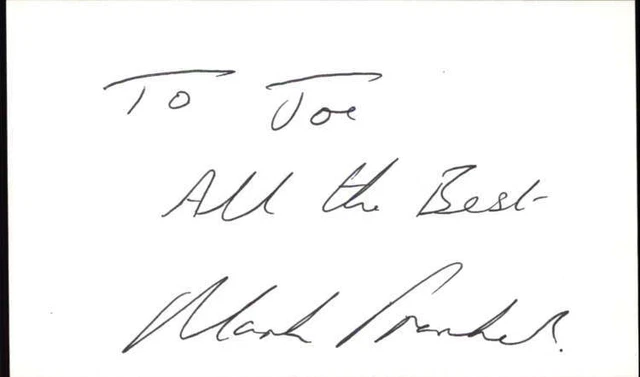 To Joe
All the Best
Mark Frankel.